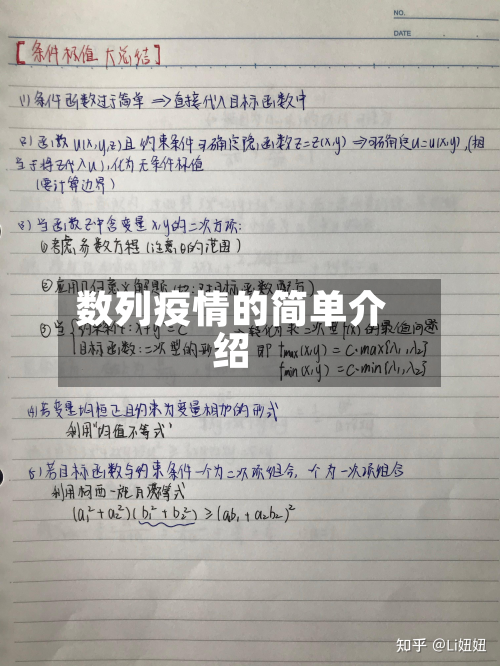 NO.
DATE
[条件极值 大总结]
(1) 条件函数过于简单 ⇒ 直接代入目标函数中
(2) 函数 u(x,y,z) 且约束条件可确定隐函数 z=z(x,y) ⇒ 可确定 u=u(x,y), (相
当于将z代入u), 化为无条件极值
(要计算边界)
(3) 当函数 中含变量 x,y的二次方项:
① 考虑参数方程 (注意θ的范围)
② 应用几何意义
数列疫情的简单介
绍
③ 当
目标函数:二次型的形 即 fmax(x,y) = C·max{λ₁,λ₂}
fmin(x,y) = C·min{λ₁,λ₂}
(4) 若变量均恒正且约束为变量相加的形式
利用"均值不等式"
(5) 若目标函数与约束条件一个为二次项组合, 个为一次项组合
利用柯西 不等式
(a₁²+a₂²)(b₁²+b₂²) ≥ (a₁b₁+a₂b₂)²
知乎 @Li妞妞